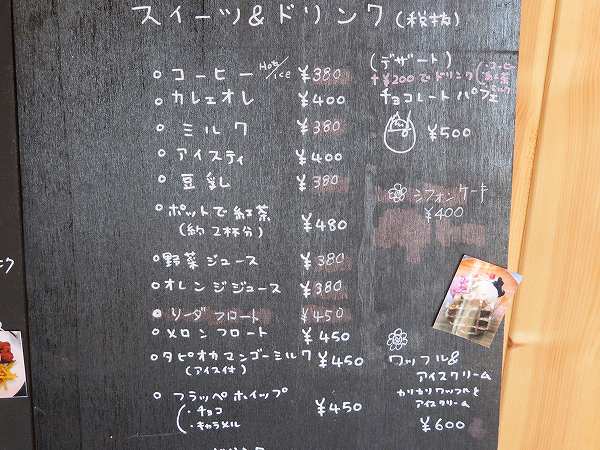 スイーツ&ドリンク(税抜)
コーヒー Hot/ice ¥380
カレェオレ ¥400
ミルク ¥380
アイスティ ¥400
豆乳 ¥380
ポットで紅茶
(約2杯分) ¥480
野菜ジュース ¥380
オレンジジュース ¥380
ソーダフロート ¥450
メロンフロート ¥450
タピオカマンゴーミルク ¥450
(アイス付)
フラッペホイップ
・チョコ ¥450
・キャラメル
(デザート)
+¥200でドリンク
チョコレートパフェ
¥500
シフォンケーキ
¥400
ワッフル&
アイスクリーム
カリカリワッフルと
アイスクリーム
¥600